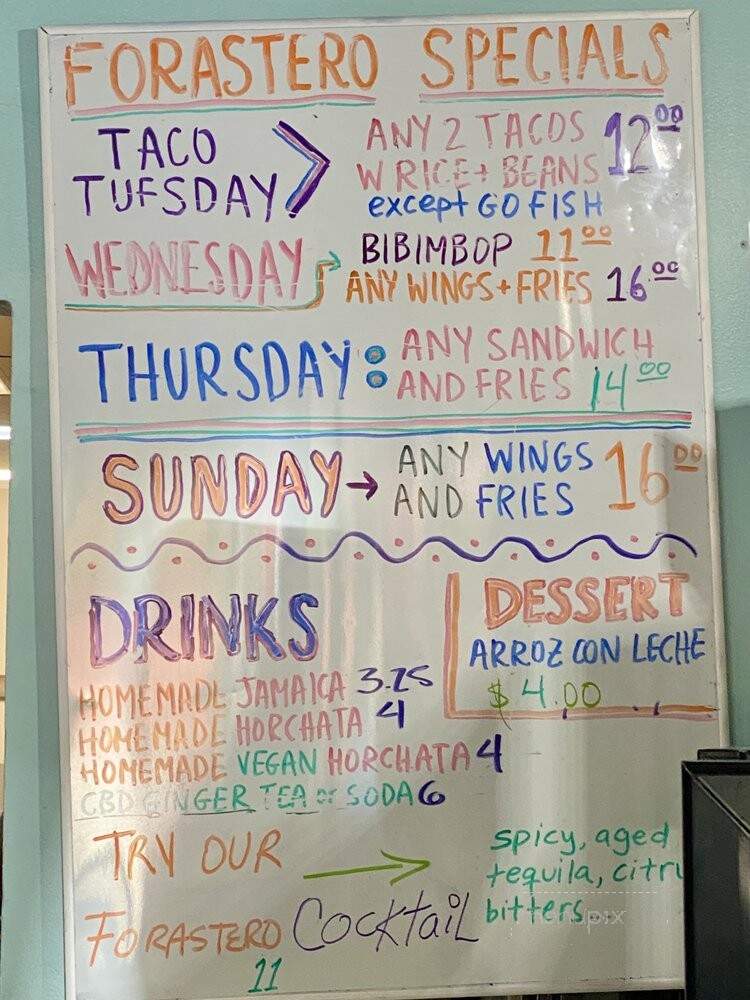 FORASTERO SPECIALS
TACO TUESDAY >
ANY 2 TACOS
W RICE + BEANS 12 00
except GO FISH
WEDNESDAY
BIBIMBOP 11 00
ANY WINGS + FRIES 16.00
THURSDAY:
ANY SANDWICH
AND FRIES 14 00
SUNDAY →
ANY WINGS
AND FRIES 16 00
DRINKS
HOMEMADE JAMAICA 3.25
HOMEMADE HORCHATA 4
HOMEMADE VEGAN HORCHATA 4
CBD GINGER TEA or SODA 6
DESSERT
ARROZ CON LECHE
$ 4.00
TRY OUR →
FORASTERO Cocktail
11
spicy, aged
tequila,
bitters